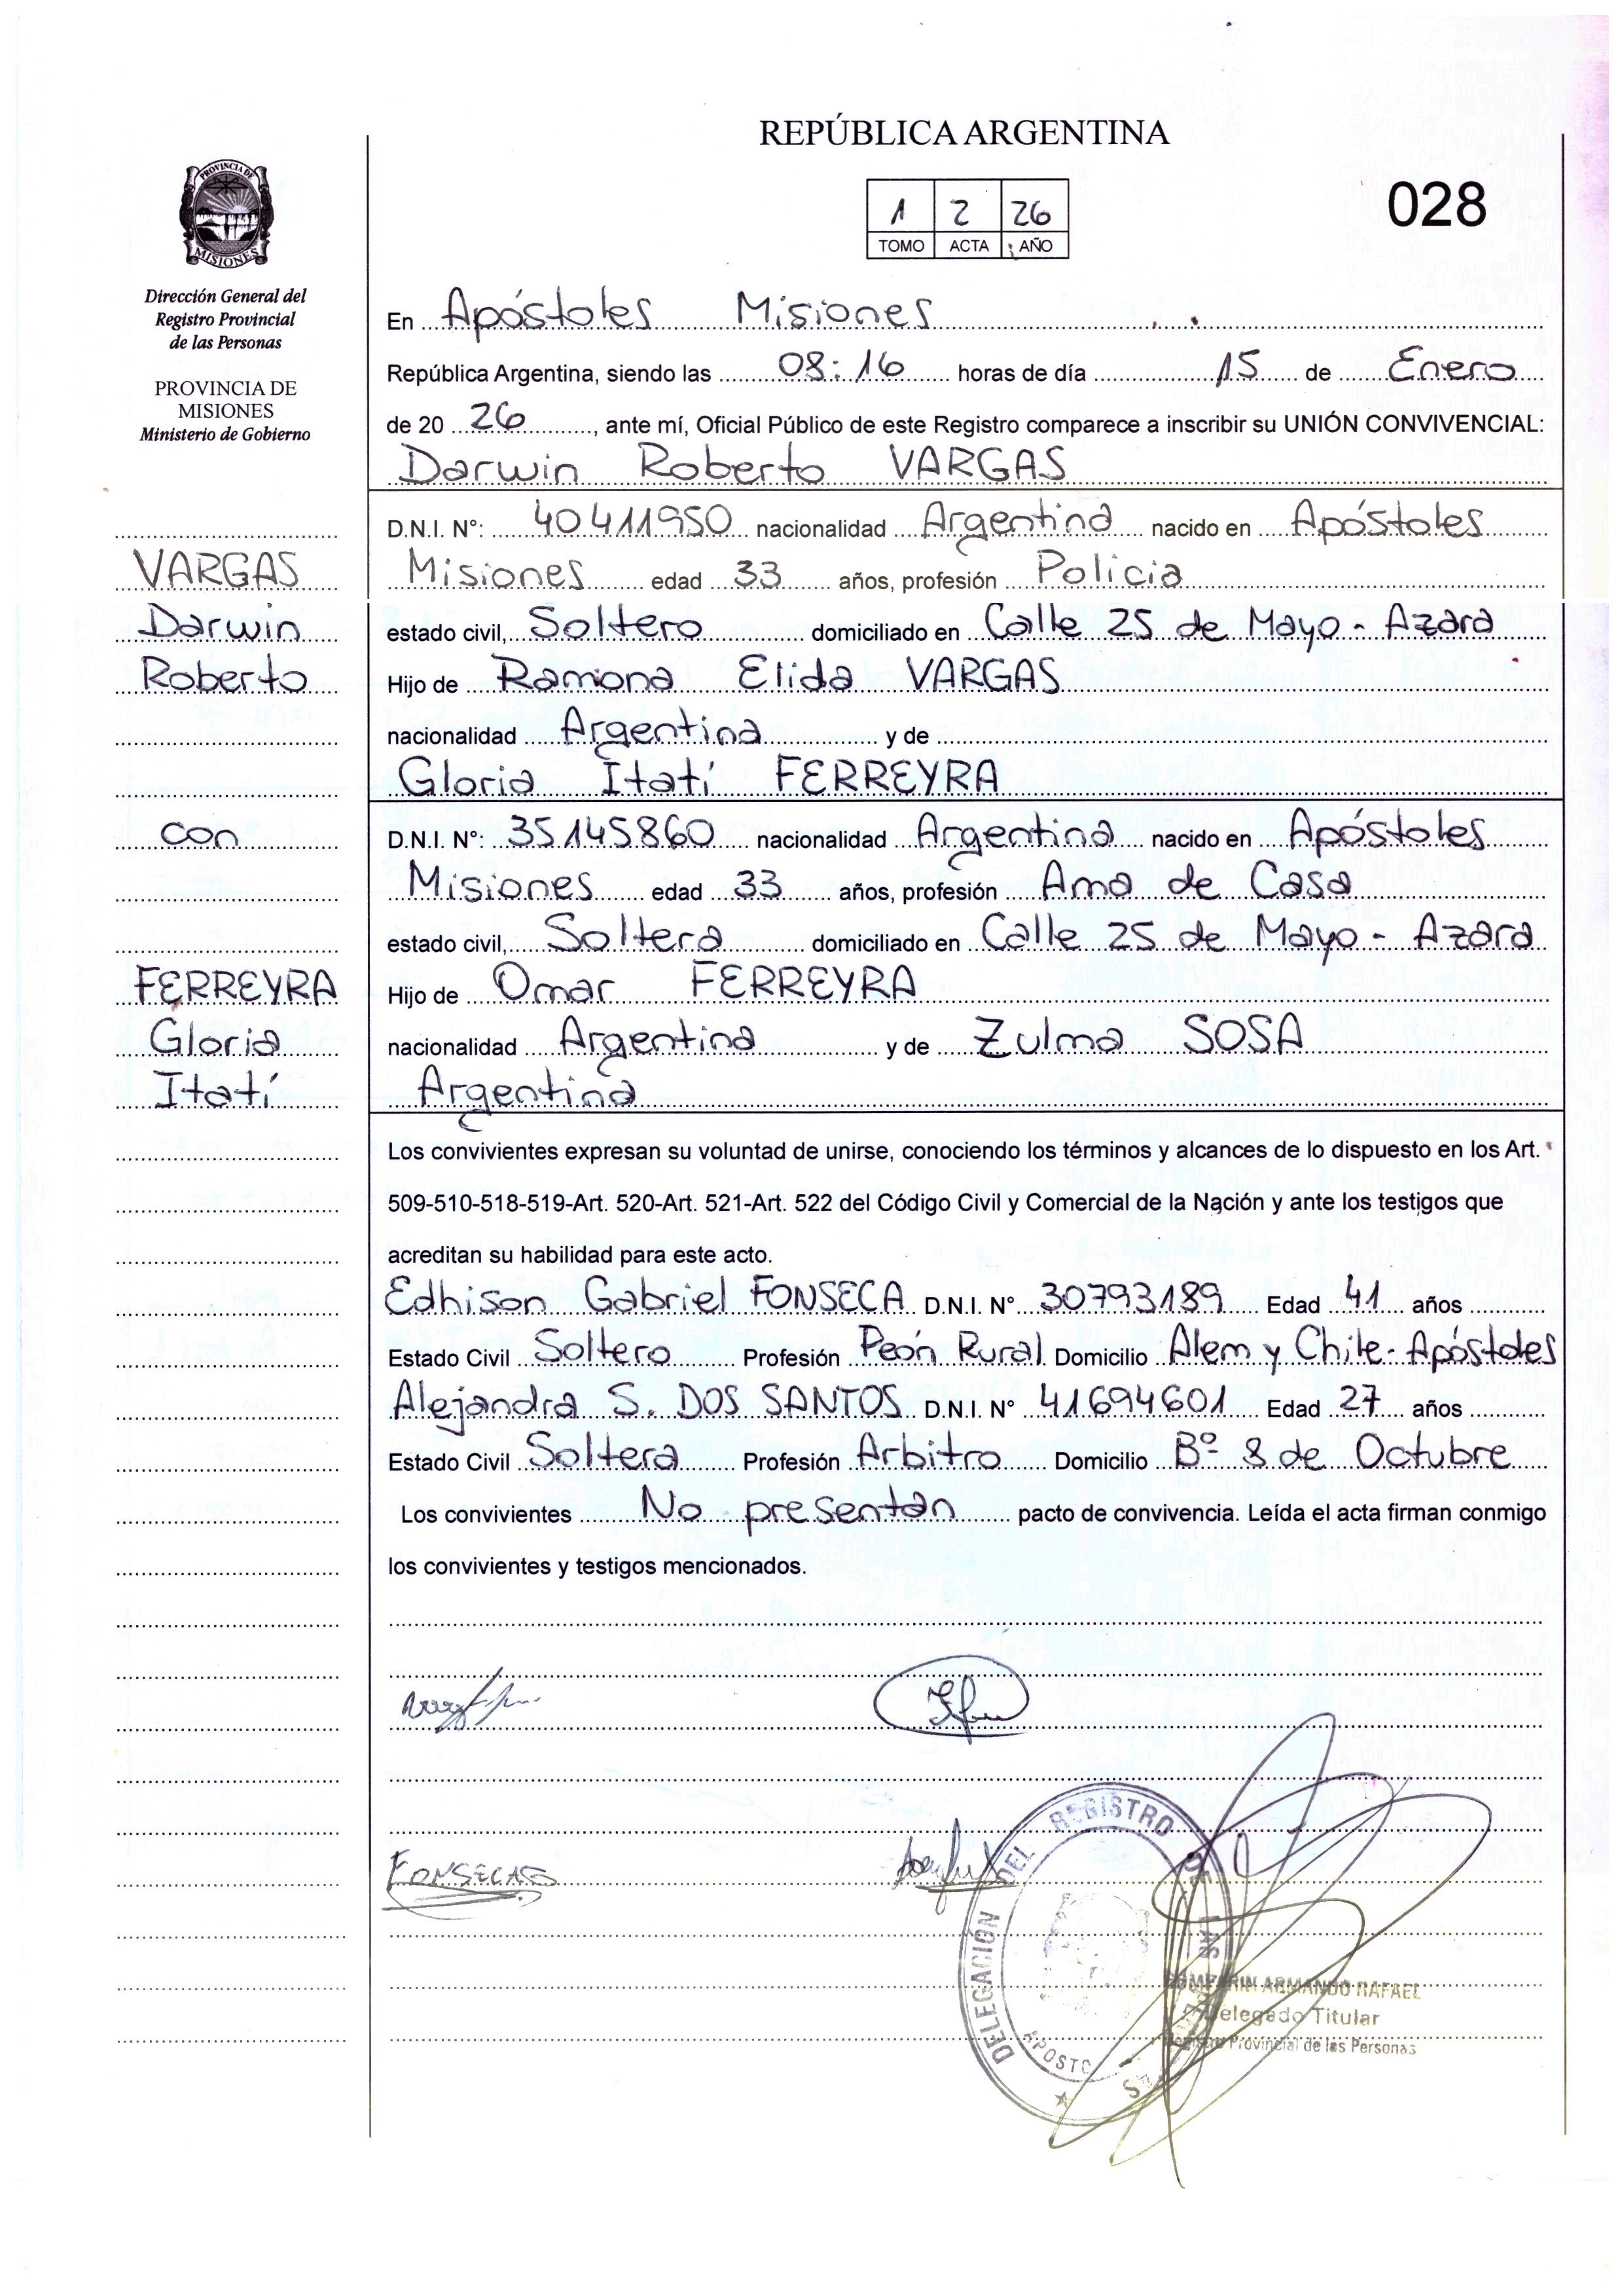 REPÚBLICA ARGENTINA
1 2 26
TOMO ACTA AÑO
028
PROVINCIA DE
MISIONES
Dirección General del
Registro Provincial
de las Personas
PROVINCIA DE
MISIONES
Ministerio de Gobierno
En Apóstoles Misiones
República Argentina, siendo las 08:16 horas de día 15 de Enero
de 20 26, ante mí, Oficial Público de este Registro comparece a inscribir su UNIÓN CONVIVENCIAL:
Darwin Roberto VARGAS
D.N.I. N°: 40411950 nacionalidad Argentina nacido en Apóstoles
VARGAS
Misiones edad 33 años, profesión Policia
Darwin
estado civil, Soltero domiciliado en Calle 25 de Mayo - Azara
Roberto
Hijo de Ramona Elida VARGAS
nacionalidad Argentina y de
Gloria Itatí FERREYRA
con
D.N.I. N°: 35145860 nacionalidad Argentina nacido en Apóstoles
Misiones edad 33 años, profesión Ama de Casa
estado civil, Soltera domiciliado en Calle 25 de Mayo - Azara
FERREYRA
Hijo de Omar FERREYRA
Gloria
nacionalidad Argentina y de Zulma SOSA
Itatí
Argentina
Los convivientes expresan su voluntad de unirse, conociendo los términos y alcances de lo dispuesto en los Art.
509-510-518-519-Art. 520-Art. 521-Art. 522 del Código Civil y Comercial de la Nación y ante los testigos que
acreditan su habilidad para este acto.
Edhison Gabriel FONSECA D.N.I. N° 30793189 Edad 41 años
Estado Civil Soltero Profesión Peón Rural Domicilio Alem y Chile - Apóstoles
Alejandra S. DOS SANTOS D.N.I. N° 41694601 Edad 27 años
Estado Civil Soltera Profesión Arbitro Domicilio Bº 8 de Octubre
Los convivientes No presentan pacto de convivencia. Leída el acta firman conmigo
los convivientes y testigos mencionados.
FONSECA
DELEGACIÓN DEL REGISTRO DE LAS
ARMANDO RAFAEL
Delegado Titular
Registro Provincial de las Personas